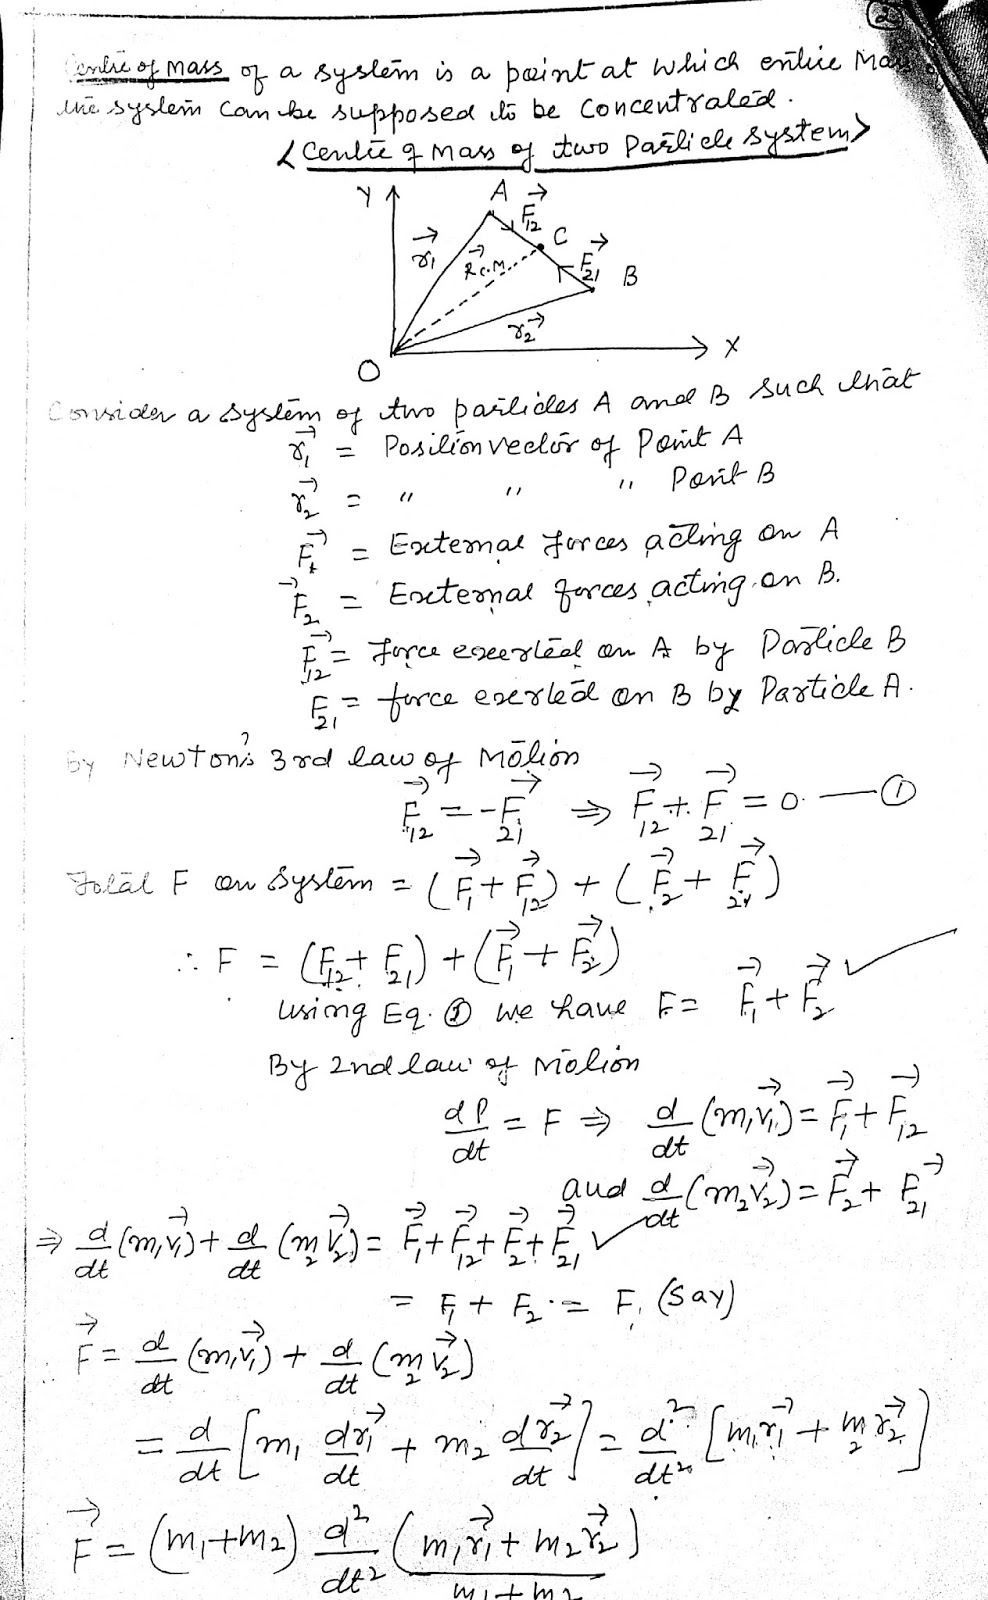 2
Centre of Mass of a system is a point at which entire Mass of
the system can be supposed to be concentrated.
< Centre of Mass of two Particle system >
Y A F⃗12
r⃗1 R⃗C.M. C F⃗21 B
r⃗2
O X
Consider a system of two particles A and B such that
r⃗1 = Position vector of Point A
r⃗2 = " " " Point B
F⃗1 = External forces acting on A
F⃗2 = External forces acting on B.
F⃗12 = force exerted on A by Particle B
F21 = force exerted on B by Particle A.
By Newton's 3rd law of Motion
F⃗12 = -F⃗21 ⇒ F⃗12 + F⃗21 = 0 — ①
Total F on system = (F⃗1 + F⃗12) + (F⃗2 + F⃗21)
∴ F = (F12 + F21) + (F⃗1 + F⃗2)
using Eq. ① we have F = F⃗1 + F⃗2
By 2nd law of Motion
dP/dt = F ⇒ d/dt (m1v⃗1) = F⃗1 + F⃗12
and d/dt (m2v⃗2) = F⃗2 + F⃗21
⇒ d/dt (m1v⃗1) + d/dt (m2v⃗2) = F⃗1 + F⃗12 + F⃗2 + F⃗21
= F1 + F2 = F. (Say)
∴ F⃗ = d/dt (m1v⃗1) + d/dt (m2v⃗2)
= d/dt [m1 dr⃗1/dt + m2 dr⃗2/dt] = d²/dt² [m1r⃗1 + m2r⃗2]
F⃗ = (m1+m2) d²/dt² (m1r⃗1 + m2r⃗2)/m1+m2